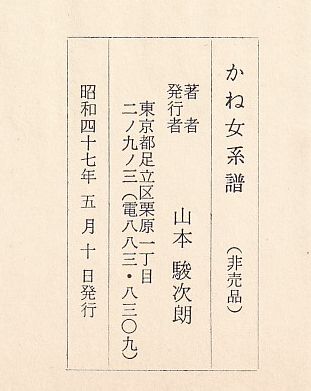 かね女系譜　（非売品）
著者
発行者　山本駿次朗
東京都足立区栗原一丁目
二ノ九ノ三（電八八三・八三〇九）
昭和四十七年五月十日発行